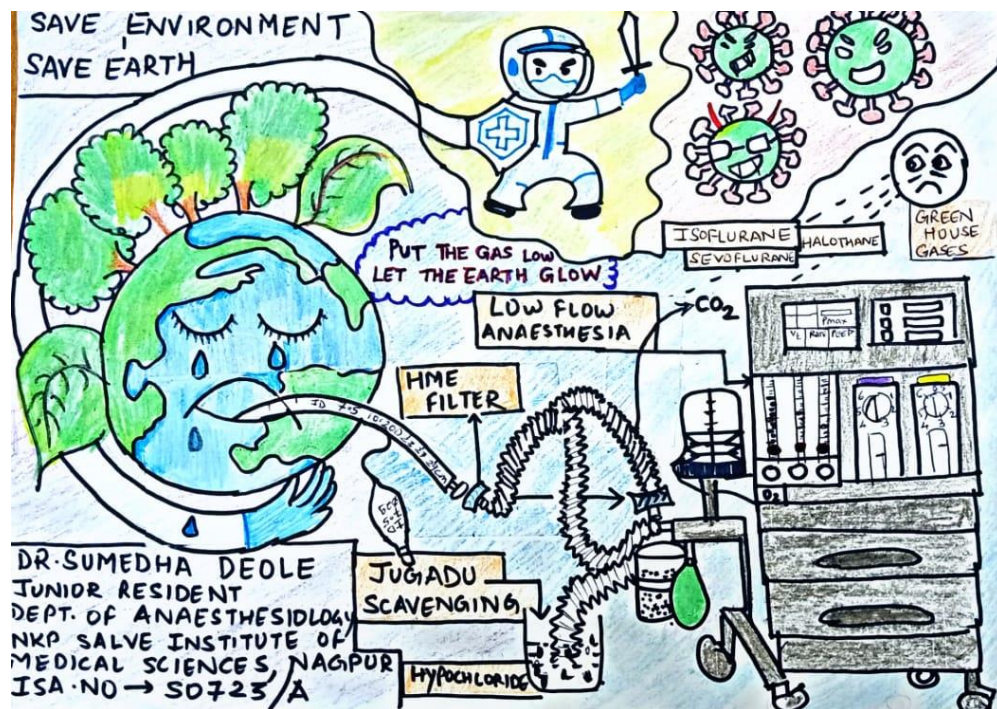 SAVE ENVIRONMENT
SAVE EARTH
PUT THE GAS LOW
LET THE EARTH GLOW
ISOFLURANE
HALOTHANE
SEVOFLURANE
GREEN
HOUSE
GASES
LOW FLOW
ANAESTHESIA
CO2
Pmax
HME
FILTER
O2
JUGADU
SCAVENGING
HYPOCHLORIDE
DR. SUMEDHA DEOLE
JUNIOR RESIDENT
DEPT. OF ANAESTHESIOLOGY
NKP SALVE INSTITUTE OF
MEDICAL SCIENCES, NAGPUR
ISA.NO → S0723/A